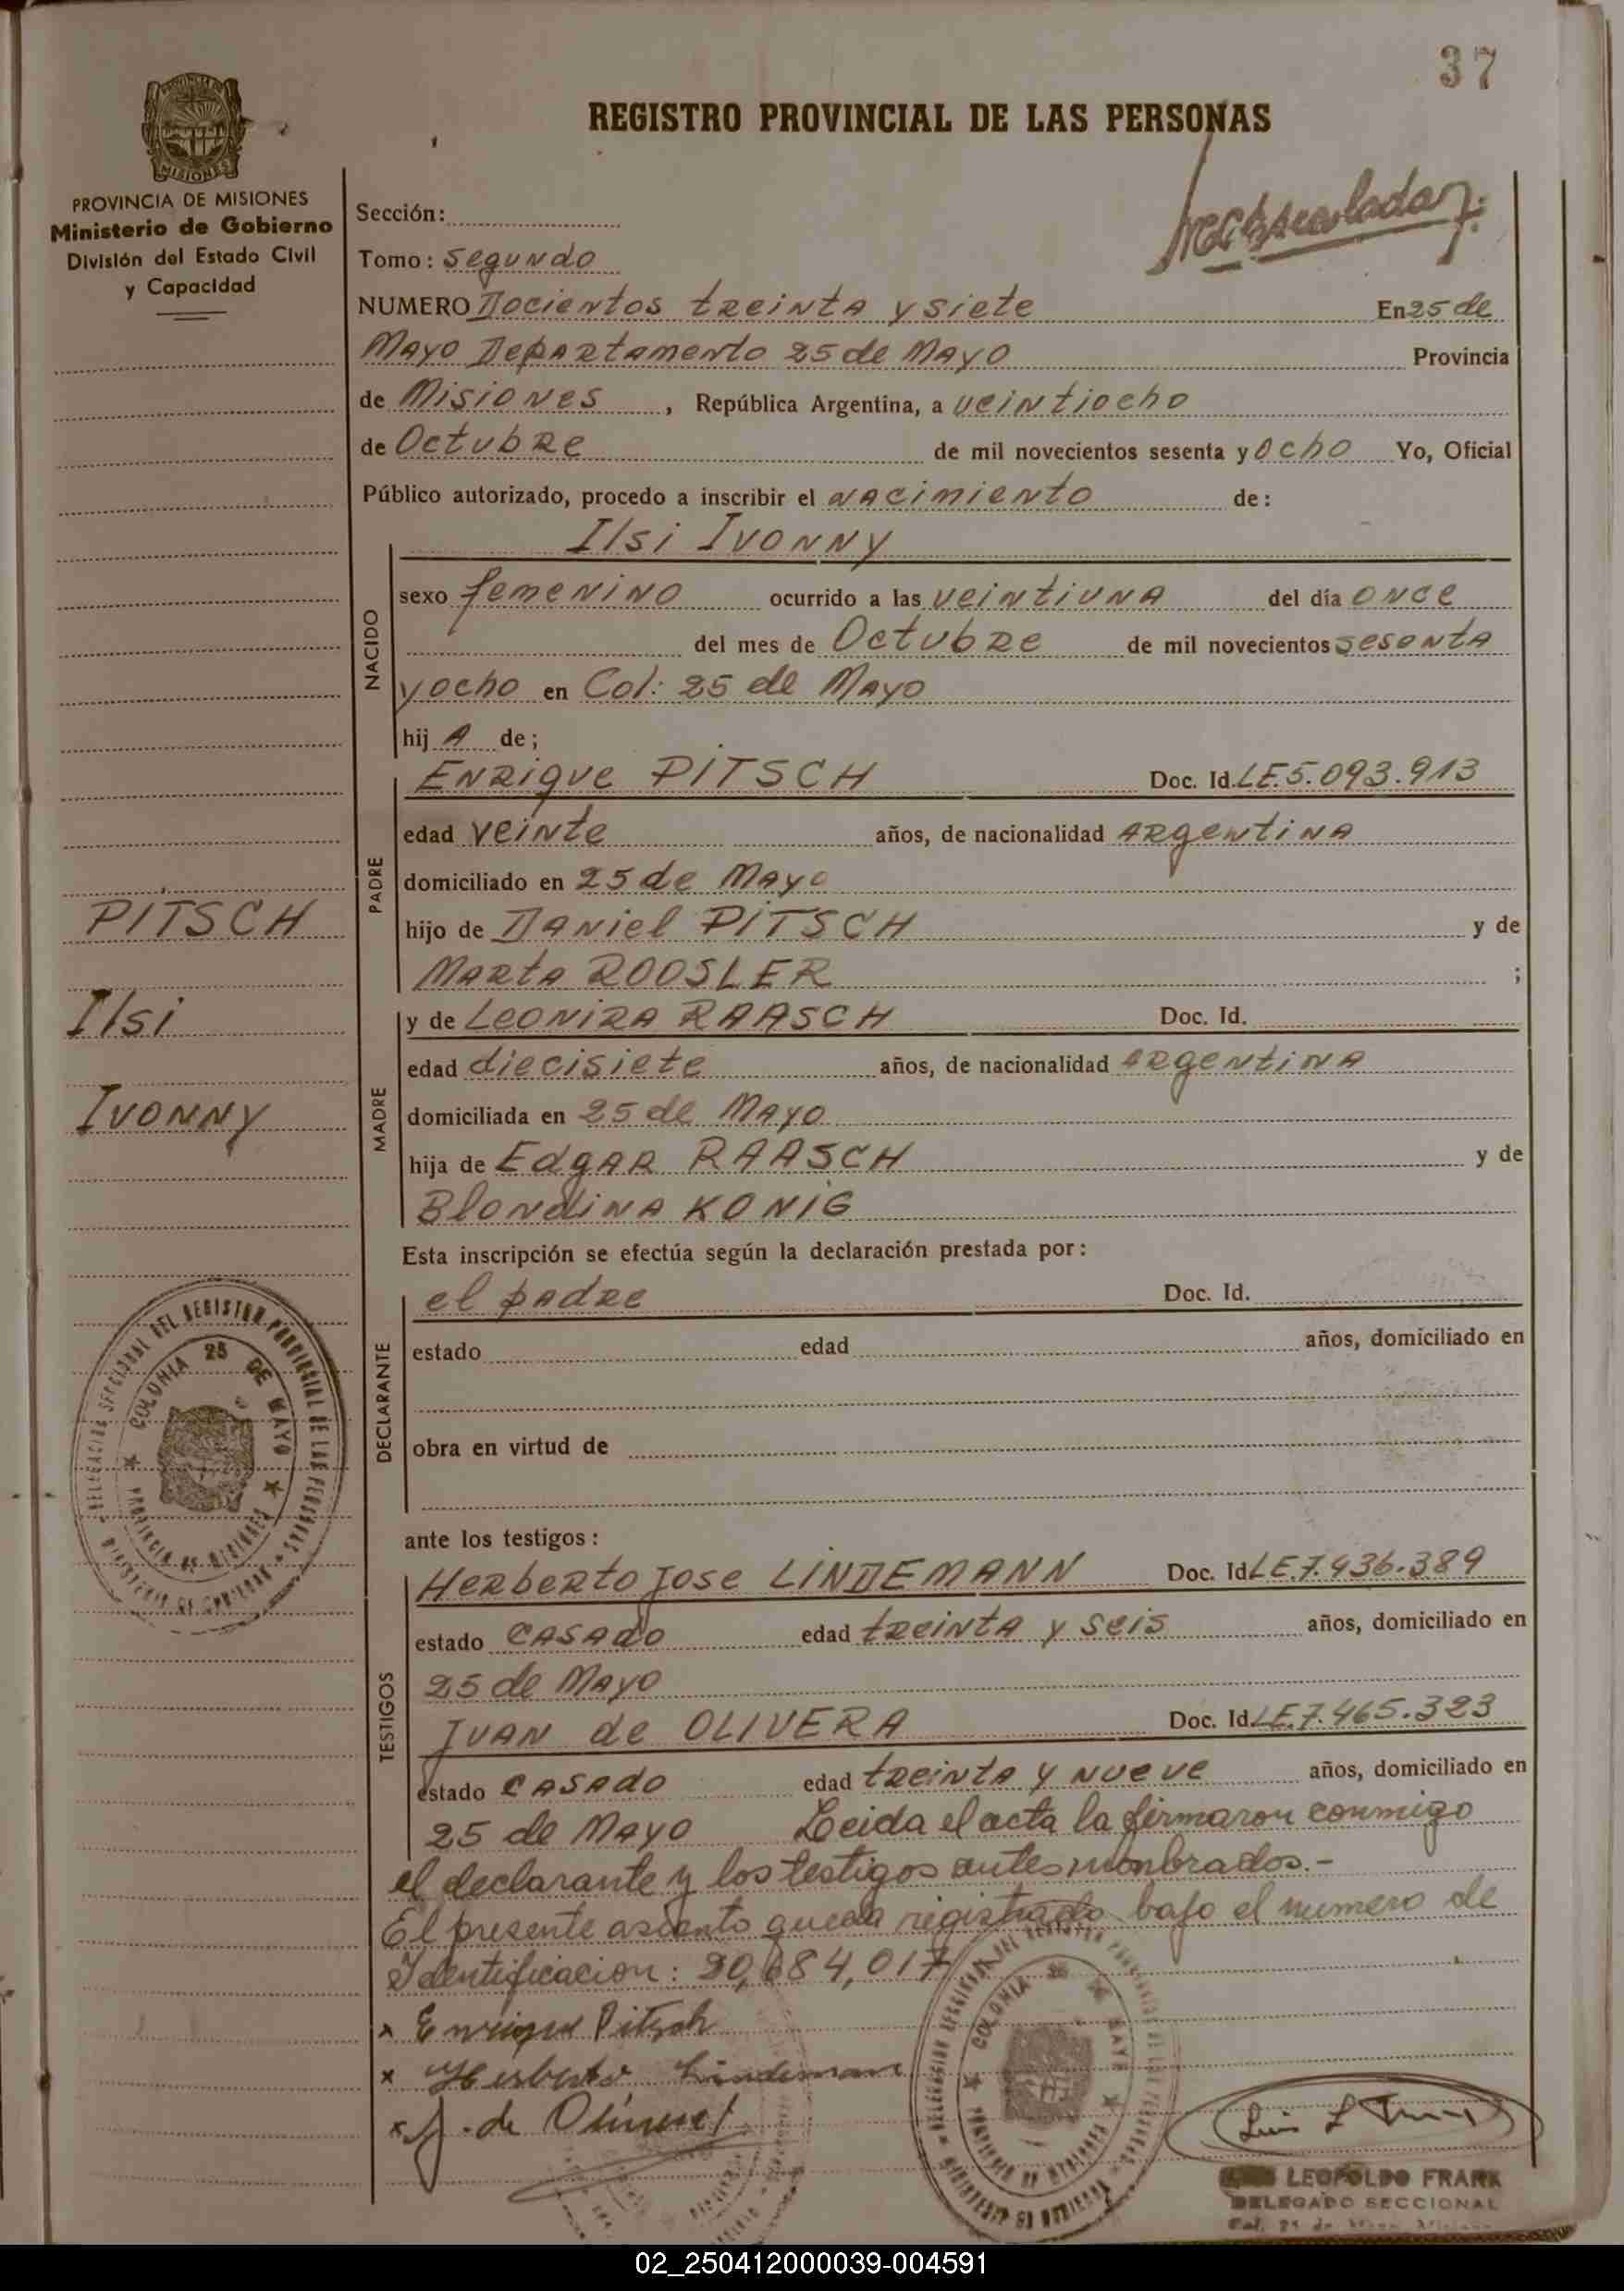 37
REGISTRO PROVINCIAL DE LAS PERSONAS
MISIONES
PROVINCIA DE MISIONES
Ministerio de Gobierno
División del Estado Civil
y Capacidad
Sección:
Tomo: segundo
NUMERO Docientos treinta y siete En 25 de
Mayo Departamento 25 de Mayo Provincia
de Misiones, República Argentina, a veintiocho
de Octubre de mil novecientos sesenta y ocho Yo, Oficial
Público autorizado, procedo a inscribir el nacimiento de:
Ilsi Ivonny
NACIDO
sexo femenino ocurrido a las veintiuna del día once
del mes de Octubre de mil novecientos sesenta
y ocho en Col: 25 de Mayo
hij A de;
PADRE
Enrique PITSCH Doc. Id. LE. 5.093.913
edad veinte años, de nacionalidad Argentina
domiciliado en 25 de Mayo
hijo de Daniel PITSCH y de
Marta ROOSLER ;
PITSCH
Ilsi
Ivonny
MADRE
y de Leonira RAASCH Doc. Id.
edad diecisiete años, de nacionalidad Argentina
domiciliada en 25 de Mayo
hija de Edgar RAASCH y de
Blondina KONIG
Esta inscripción se efectúa según la declaración prestada por:
DECLARANTE
el padre Doc. Id.
estado edad años, domiciliado en
obra en virtud de
DELEGACION SECCIONAL DEL REGISTRO PROVINCIAL DE LAS PERSONAS
COLONIA 25 DE MAYO
PROVINCIA DE MISIONES
ante los testigos:
TESTIGOS
Herberto Jose LINDEMANN Doc. Id. LE. 7.436.389
estado casado edad treinta y seis años, domiciliado en
25 de Mayo
Juan de OLIVERA Doc. Id. LE. 7.465.323
estado casado edad treinta y nueve años, domiciliado en
25 de Mayo Leida el acta la firmaron conmigo
el declarante y los testigos antes nombrados.-
El presente asiento queda registrado bajo el numero de
Identificacion: 20,684,017
x Enrique Pitsch
x Herberto Lindemann
x J. de Olivera
COLONIA 25 DE MAYO
PROVINCIA DE MISIONES
LEOPOLDO FRANK
DELEGADO SECCIONAL
02_250412000039-004591